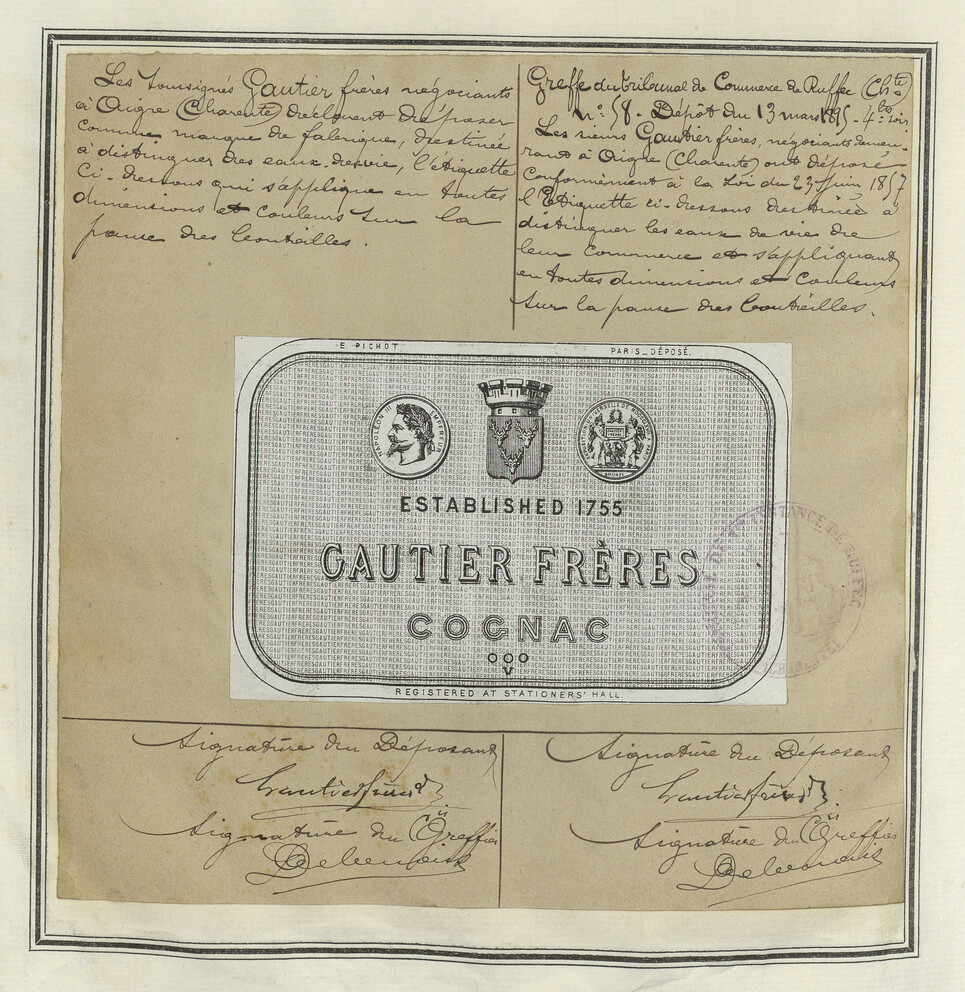 Les soussignés Gautier frères négociants
à Aigre (Charente) déclarent déposer
comme marque de fabrique, destinée
à distinguer des eaux-de-vie, l'étiquette
ci-dessous qui s'applique en toutes
dimensions et couleurs sur la
panse des bouteilles.
Greffe du Tribunal de Commerce de Ruffec (Chte)
N° 58. Dépôt du 13 mars - 4 h soir
Les sieurs Gautier frères, négociants demeu-
rant à Aigre (Charente) ont déposé
conformément à la Loi du 23 Juin 1857
l'Etiquette ci-dessous destinée à
distinguer les eaux de vie de
leur commerce et s'appliquant
en toutes dimensions et couleurs
sur la panse des bouteilles.
E. PICHOT PARIS_DÉPOSÉ.
NAPOLEON III EMPEREUR
ESTABLISHED 1755
GAUTIER FRÈRES
COGNAC
OOO
V
REGISTERED AT STATIONERS' HALL.
Signature du Déposant
Gautier frères
Signature du Greffier
Signature du Déposant
Gautier frères
Signature du Greffier